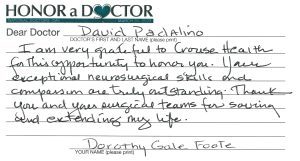 HONOR a DOCTOR
Dear Doctor David Padalino
DOCTOR'S FIRST AND LAST NAME (please print)
I am very grateful to Crouse Health
for this opportunity to honor you. Your
exceptional neurosurgical skills and
compassion are truly outstanding. Thank
you and your surgical teams for saving
and extending my life.
Dorothy Gale Foote
YOUR NAME (please print)